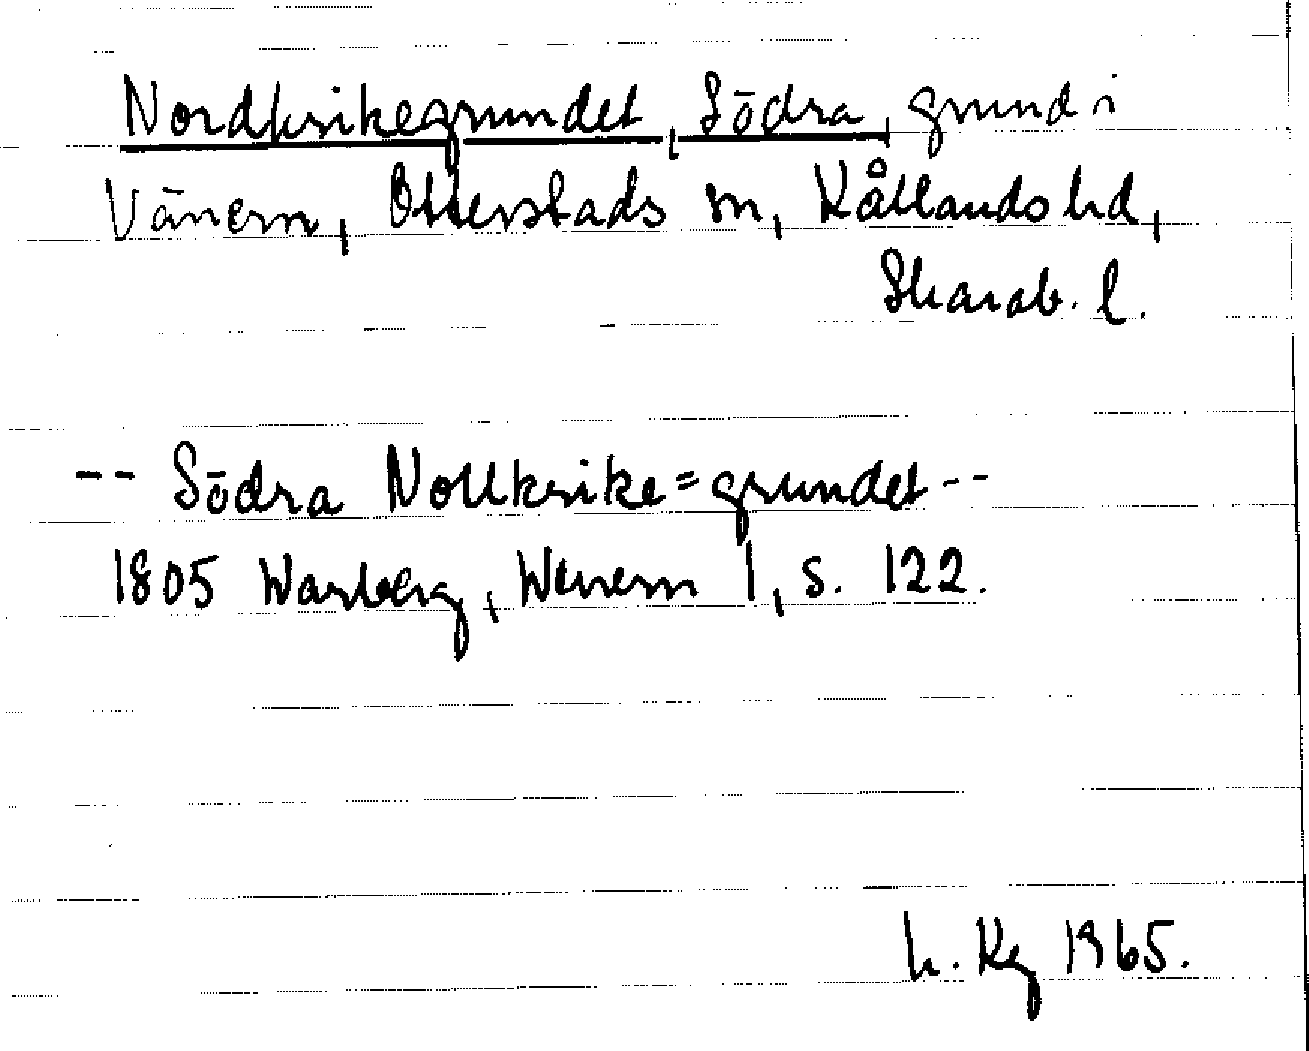 Nordkrikegrundet, Södra, grund i
Vänern, Otterstads sn, Kållands hd,
Skarab. l.
-- Södra Nollkrike=grundet --
1805 Warberg, Wenern 1, s. 122.
h. Kg 1965.